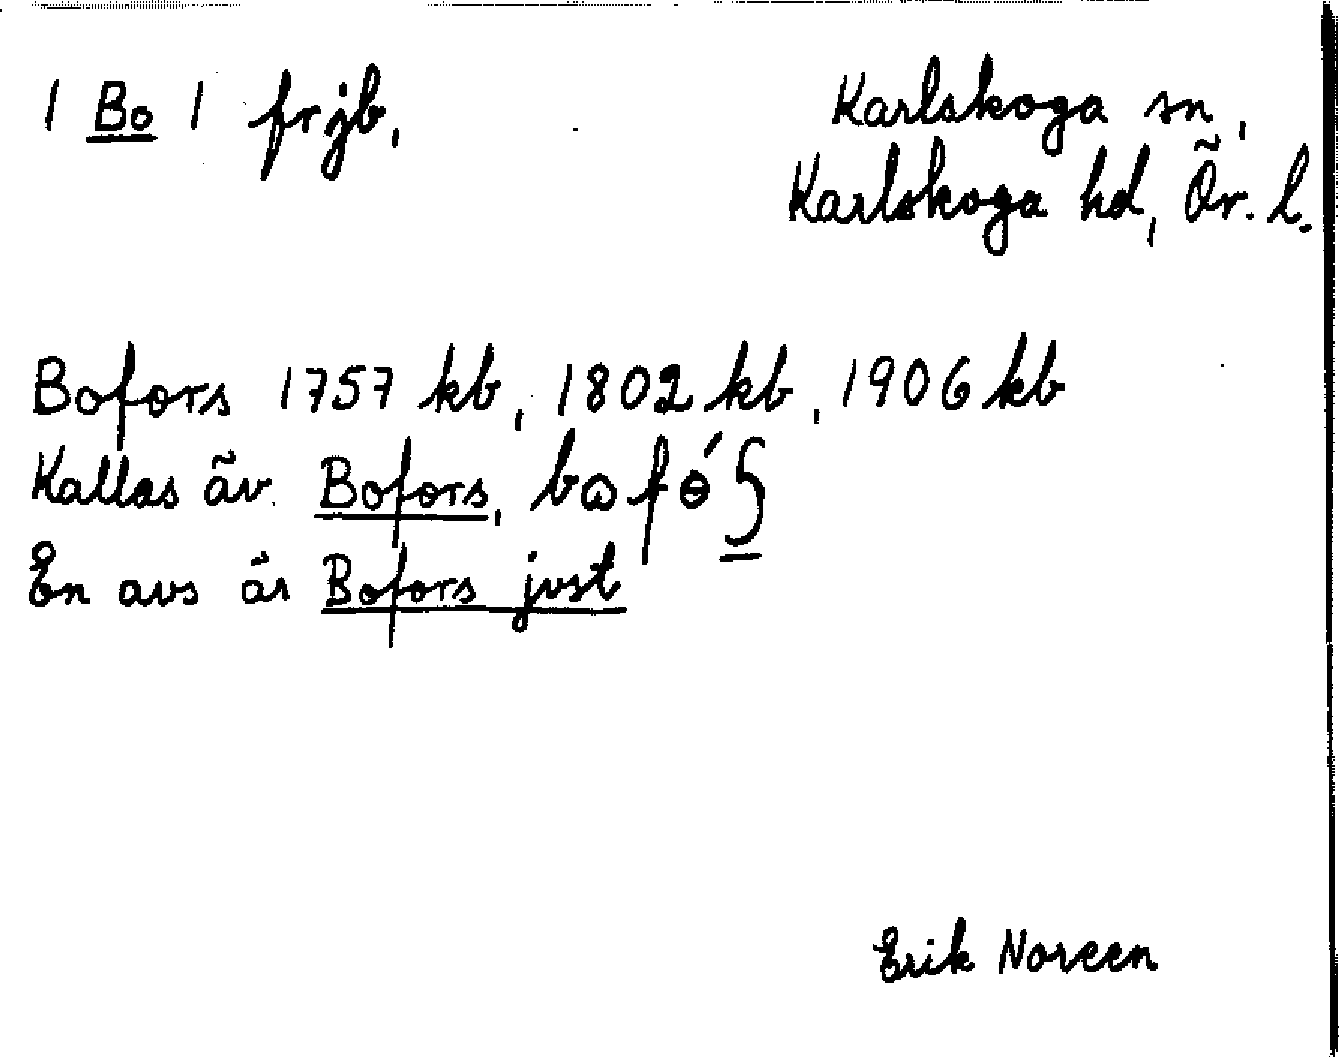 1 Bo 1 frjb,
Karlskoga sn,
Karlskoga hd, Ör. l.
Bofors 1757 kb, 1802 kb, 1906 kb
Kallas äv. Bofors,
En avs är Bofors just
Erik Noreen